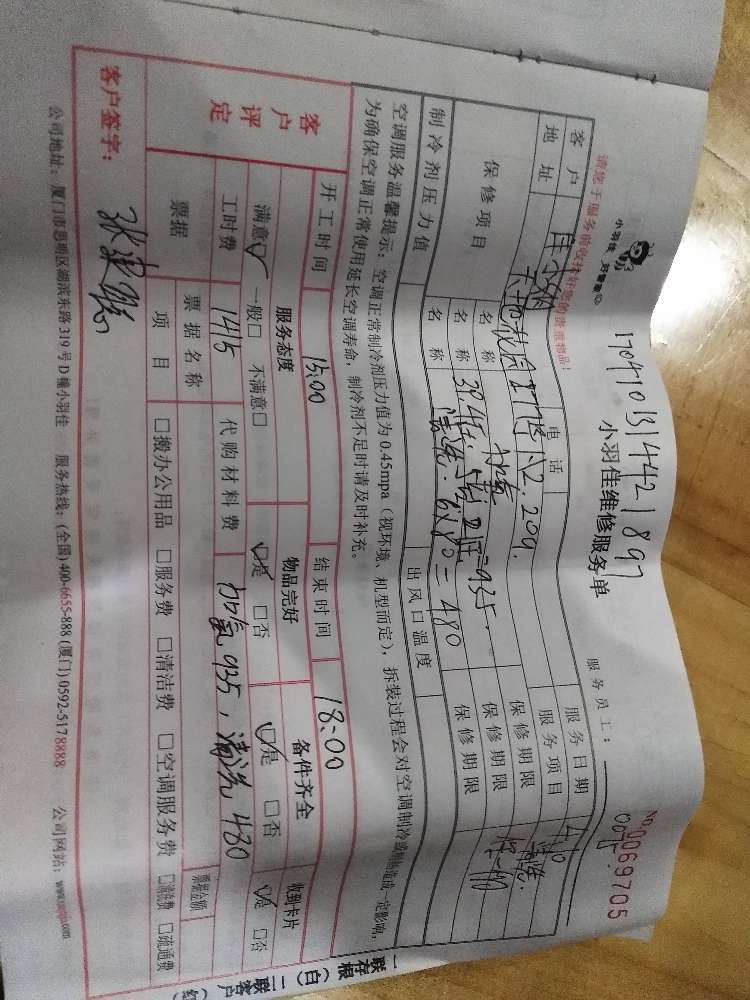 17041013144218 97
小羽佳 郑管家
小羽佳维修服务单
服务员工：
No 0069705
请您于服务前收拾好您的贵重物品!
客户
电话
服务日期 4.10
地址
服务项目 清洗
保修项目
名称 加氟
保修期限
名称
保修期限
名称 清洗. 6×80=480
保修期限
制冷剂压力值
出风口温度
空调服务温馨提示：空调正常制冷剂压力值为0.45mpa（视环境、机型而定），拆装过程会对空调制冷或制热造成一定影响，
为确保空调正常使用延长空调寿命，制冷剂不足时请及时补充。
客户评定
开工时间 15:00
结束时间 18:00
服务态度
物品完好
备件齐全
收到卡片
满意☑ 一般□ 不满意□
☑是 □否
☑是 □否
☑是 □否
工时费 1415
代购材料费 加氟935，清洗480
票据
票据名称
票据金额
项目
□搬办公用品 □服务费 □清洁费 □空调服务费 □清洗费 □疏通费
客户签字：
公司地址：厦门市思明区湖滨东路319号D幢小羽佳 服务热线：(全国)400-6655-888 (厦门)0592-5178888 公司网站：
一联存根（白）二联客户（红